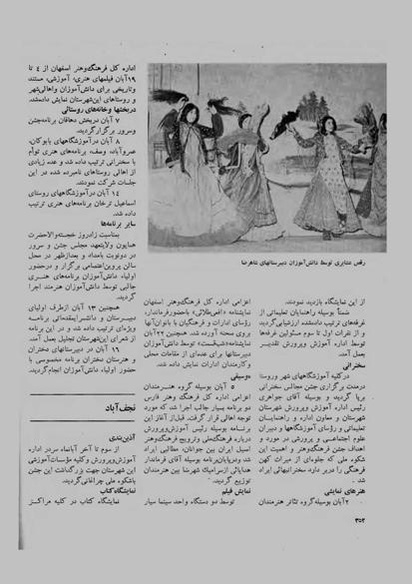 از این نمایشگاه بازدید نمودند.
ضمناً بوسیله راهنمایان تعلیماتی از
غرفه‌های ترتیب داده‌شده ارزشیابی گردید
و از نفرات اول تا سوم مسئولین غرفه‌ها
توسط اداره آموزش وپرورش تقدیر
بعمل آمد.
سخنرانی
در کلیه آموزشگاههای شهر وروستا
درمدت برگزاری جشن مجالس سخنرانی
برپا گردید و بوسیله آقای جواهری
رئیس اداره آموزش وپرورش شهرستان
شهرستان و معاون اداره و راهنمایان
تعلیماتی و رؤسای آموزشگاهها و دبیران
علوم اجتماعی و پرورشی در مورد و
اهداف جشن فرهنگ‌وهنر و اهمیت این
شکوه ملی که جلوه‌ای از میراث کهن
فرهنگی را دربر دارد سخنرانیهائی ایراد
شد.
هنرهای نمایشی
۲آبان بوسیله‌گروه تئاتر هنرمندان
اعزامی اداره کل فرهنگ‌وهنر اصفهان
نمایشنامه «افعی‌طلائی» باحضورفرماندار،
رؤسای ادارات و فرهنگیان با بانوان‌آنها
بروی صحنه آورده شد. همچنین ۲۲آبان
نمایشنامه«شیکست» توسط دانش‌آموزان
دبیرستانها برای عده‌ای از مقامات محلی
وکارمندان ادارات نمایش داده شد.
موسیقی
۵ آبان بوسیله گروه هنرمندان
اعزامی اداره کل فرهنگ وهنر فارس
دو برنامه بسیار جالب اجرا شد که مورد
توجه اهالی قرار گرفت. قبل‌از آغاز این
برنامه بوسیله رئیس آموزش‌وپرورش
درباره فرهنگ‌ملی وترویج فرهنگ‌وهنر
اصیل ایران بین جوانان، مطالبی ایراد
شد ودرپایان‌برنامه بوسیله آقای فرماندار
هدایائی ازسرامیک شهرضا بین هنرمندان
توزیع گردید.
نمایش فیلم
توسط دو دستگاه واحد سینما سیار
رقص عشایری توسط دانش‌آموزان دبیرستانهای شاهرضا
اداره کل فرهنگ‌وهنر اصفهان از ٤ تا
۱۹آبان فیلمهای هنری، آموزشی، مستند
وتاریخی برای دانش‌آموزان واهالی‌شهر
و روستاهای این‌شهرستان نمایش داده‌شد.
دربخشها وخانه‌های روستائی
۷ آبان دربخش دهاقان برنامه‌جشن
وسرور برگزارگردید.
۸ آبان درآموزشگاههای بابوکان،
عمروآباد، وصف، برنامه‌های هنری توأم
با سخنرانی ترتیب داده شد و عده زیادی
از اهالی روستاهای نامبرده شده در این
جلسات شرکت نمودند.
۱٤ آبان درآموزشگاههای روستای
اسماعیل ترخان برنامه‌های هنری ترتیب
داده شد.
سایر برنامه‌ها
بمناسبت زادروز خجسته‌والاحضرت
همایون ولایتعهد، مجلس جشن و سرور
در دونوبت بامداد و بعدازظهر در محل
سالن پروین‌اعتصامی برگزار و درحضور
اولیاء دانش‌آموزان برنامه‌های هنری
جالبی توسط دانش‌آموزان هنرمند اجرا
گردید.
همچنین ۱۳ آبان ازطرف اولیای
دبیرستان و دانشسرا‌یمقدماتی برنامه
ویژه‌ای ترتیب داده شد و در این برنامه
از شعرای این‌شهرستان تجلیل بعمل آمد.
۱۶ آبان در دبیرستانهای دختران
و هنرستان دختران برنامه مخصوصی با
حضور اولیاء دانش‌آموزان انجام‌گردید.
نجف‌آباد
آذین‌بندی
از سوم تا آخر آبانماه سردر اداره
آموزش‌وپرورش وکلیه مؤسسات‌آموزشی
این شهرستان جهت بزرگداشت این جشن
باشکوه ملی چراغانی‌گردید.
نمایشگاه‌کتاب
نمایشگاه کتاب در کلیه مراکز
۳۵۳